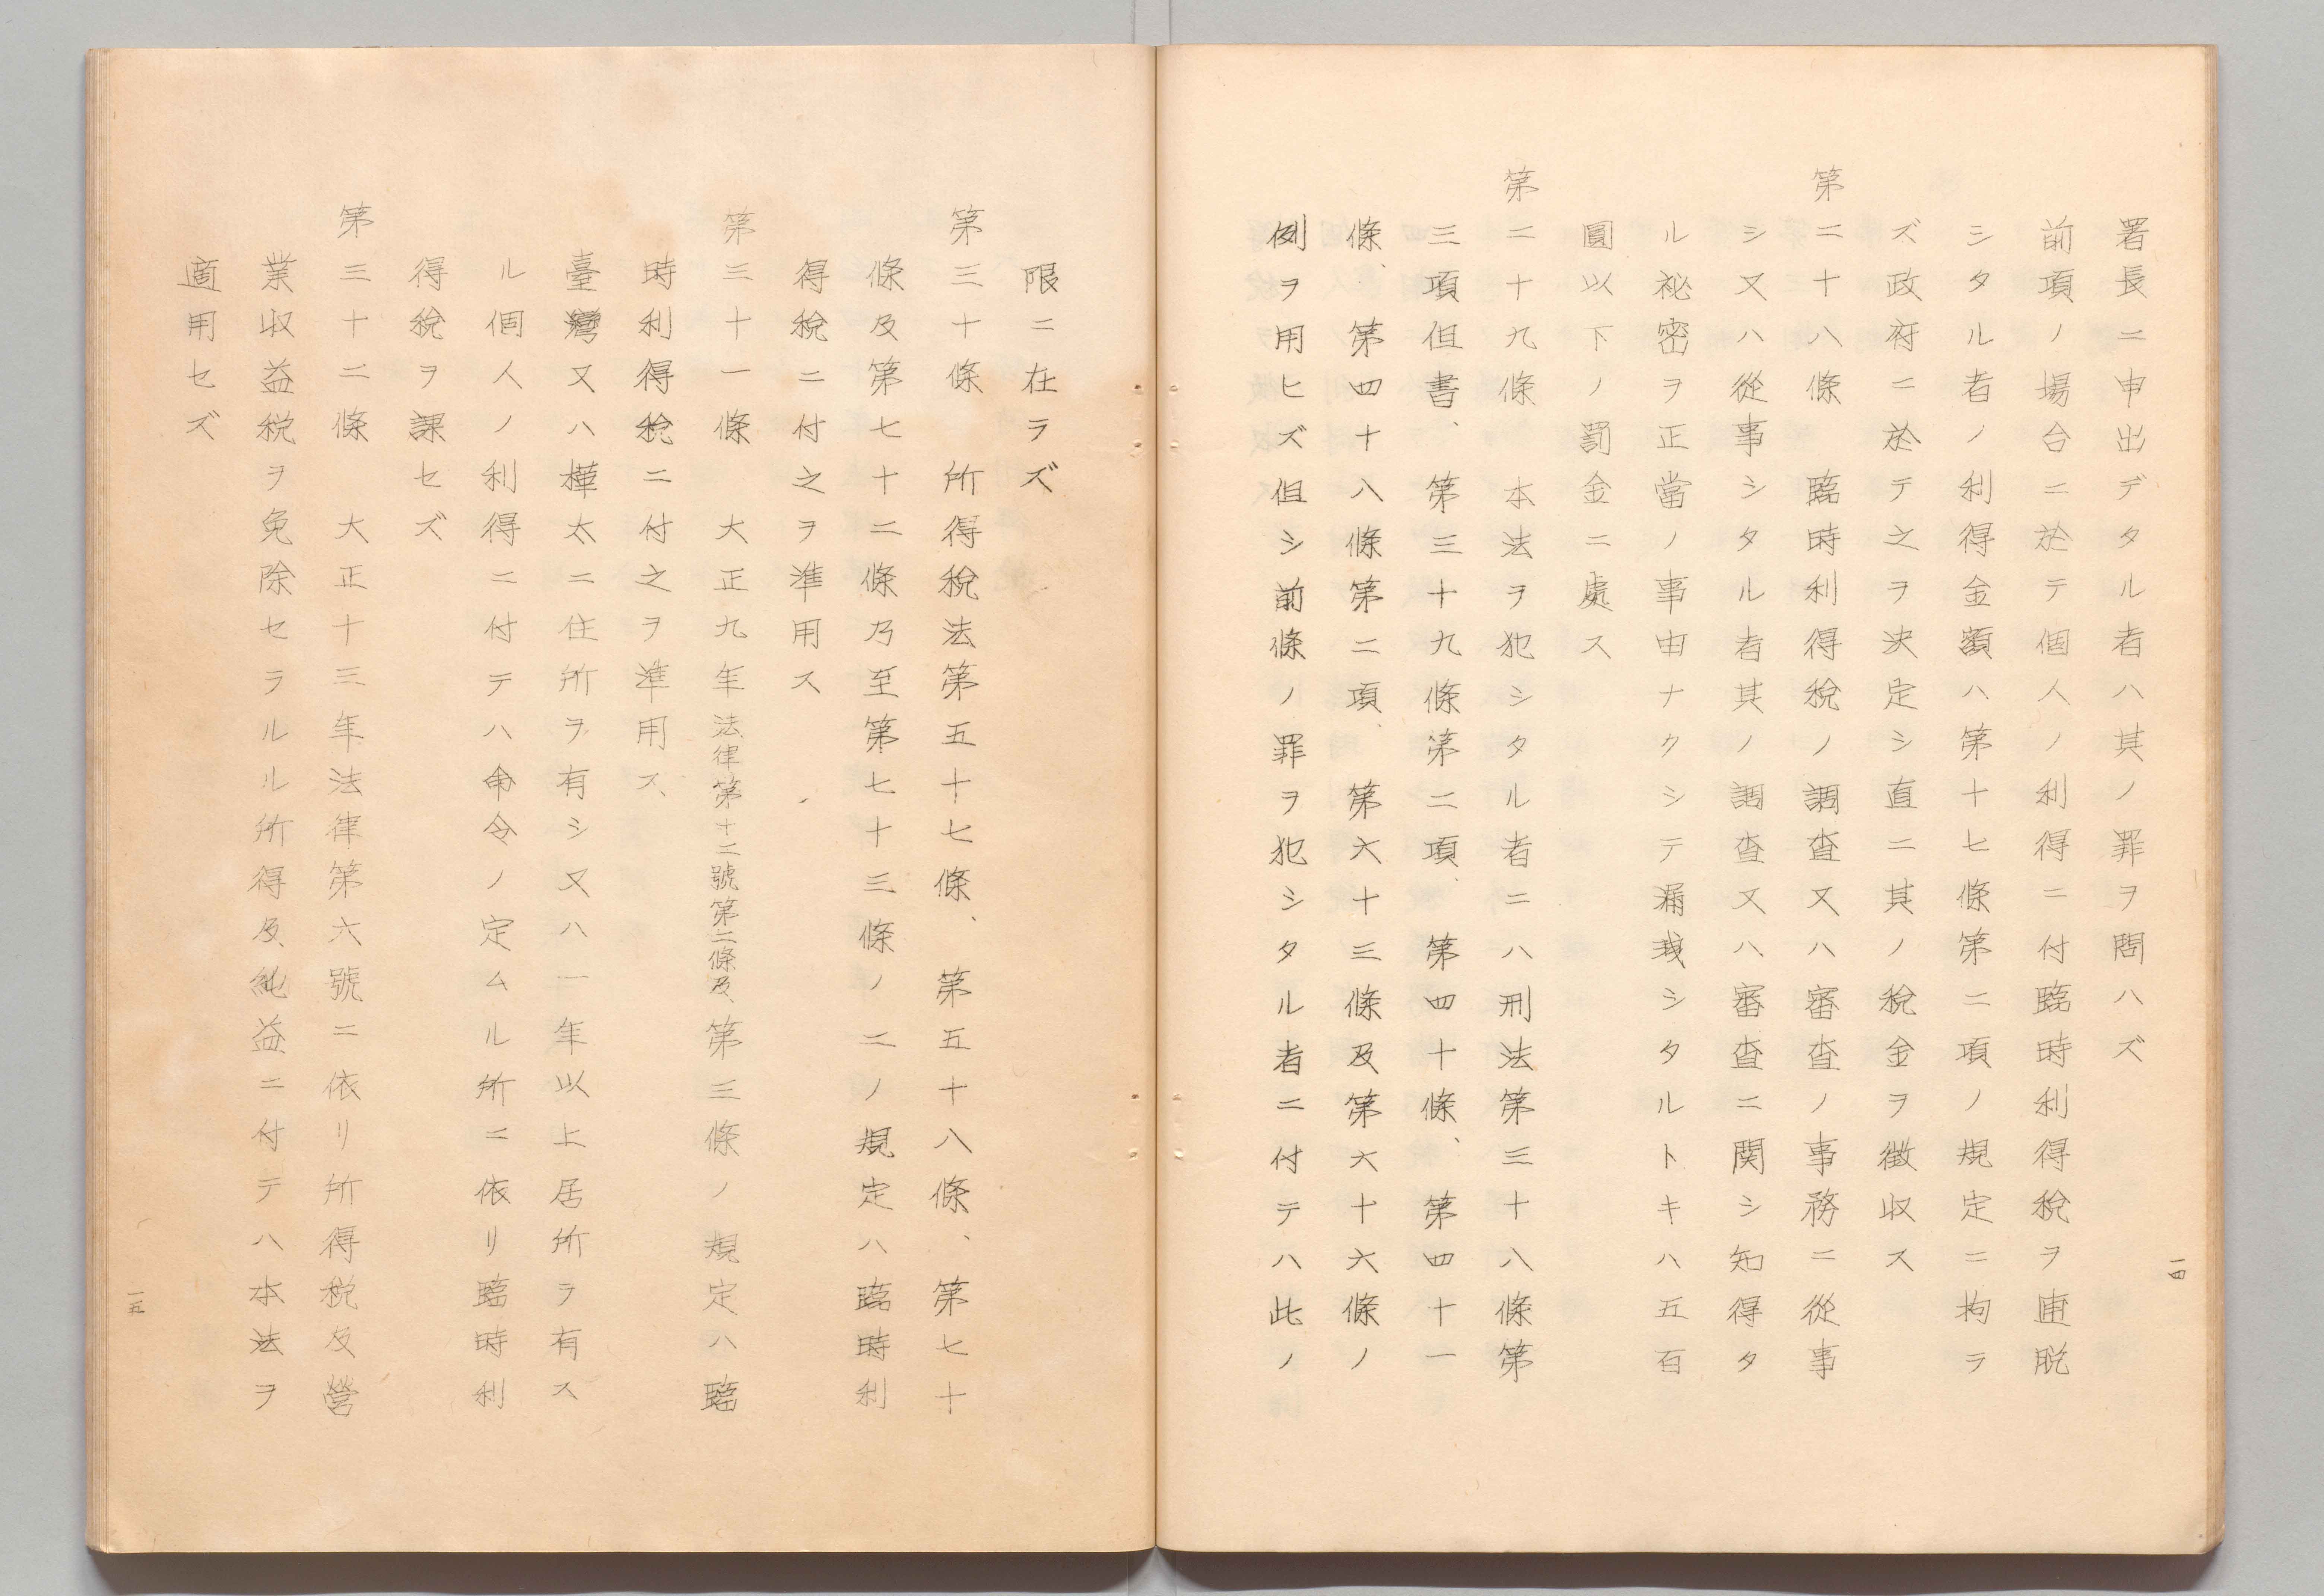 署長ニ申出デタル者ハ其ノ罪ヲ問ハズ
前項ノ場合ニ於テ個人ノ利得ニ付臨時利得稅ヲ逋脫
シタル者ノ利得金額ハ第十七條第二項ノ規定ニ拘ラ
ズ政府ニ於テ之ヲ決定シ直ニ其ノ稅金ヲ徵收ス
第二十八條　臨時利得稅ノ調査又ハ審査ノ事務ニ從事
シ又ハ從事シタル者其ノ調査又ハ審査ニ関シ知得タ
ル祕密ヲ正當ノ事由ナクシテ漏洩シタルトキハ五百
圓以下ノ罰金ニ處ス
第二十九條　本法ヲ犯シタル者ニハ刑法第三十八條第
三項但書、第三十九條第二項、第四十條、第四十一
條、第四十八條第二項、第六十三條及第六十六條ノ
例ヲ用ヒズ但シ前條ノ罪ヲ犯シタル者ニ付テハ此ノ
一四
限ニ在ラズ
第三十條　所得稅法第五十七條、第五十八條、第七十
條及第七十二條乃至第七十三條ノ二ノ規定ハ臨時利
得稅ニ付之ヲ準用ス
第三十一條　大正九年法律第十二號第二條及第三條ノ規定ハ臨
時利得稅ニ付之ヲ準用ス
臺灣又ハ樺太ニ住所ヲ有シ又ハ一年以上居所ヲ有ス
ル個人ノ利得ニ付テハ命令ノ定ムル所ニ依リ臨時利
得稅ヲ課セズ
第三十二條　大正十三年法律第六號ニ依リ所得稅及營
業收益稅ヲ免除セラルル所得及純益ニ付テハ本法ヲ
適用セズ
一五